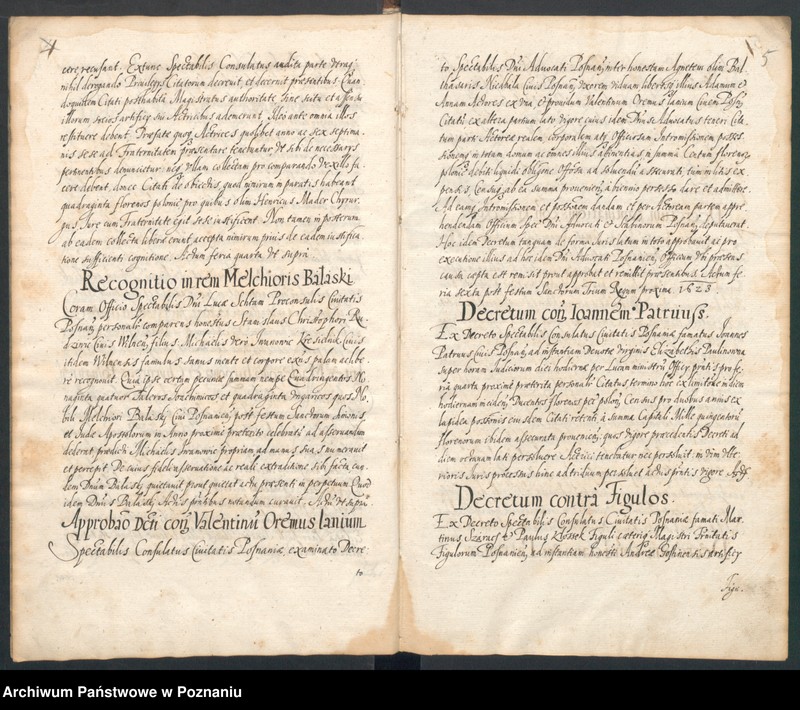 cere recusant. Extunc Spectabilis Consulatus audita parte utraq
nihil derogando Privilegys Citatorum decrevit, et decernit præsentibus Quan
doquidem Citati posthabita Magistratus authoritate sine scitu et assensu
illorum socios artificy sui Actricibus ademerunt. Ideo ante omnia illos
restituere debent. Præfatæ quoq Actrices quolibet anno ac sex septima
nis sese ad Fraternitatem præsentare tenebuntur ut sibi de necessarys
pertinentibus denuncietur: neq ullam collectam pro comparando vexillo fa
cere debent, donec Citati de obiectis, quod nimirum in parati, habeant
quadraginta florenos polonic pro quibus olim Henricus Mader Chyrur
gus, Iure cum Fraternitate egit sese iustificent. Non tamen in posterum
ab eadem collecta liberæ erunt accepta nimirum prius de eadem iustifica
tione sufficienti cognitione. Actum feria quarta ut supra
Recognitio in rem Melchioris Balaski
Coram Officio Spectabilis Dni Lucæ Schtam Proconsulis Civitatis
Posnan personalit comparens honestus Stanislaus Christophori Ra
dziwic Civis Wilnen, filius, Michaelis vero Iwanowic Civis
itidem Wilnensis famulus sanus mente et corpore exns palam ac libe
rè recognovit. Quia ipse certam pecuniæ summam nempe Quadringentos No
naginta quatuor Taleros Ioachimicos et quadraginta Ungaricos penes No
bilē Melchiorē Balaski Civē Posnanien post festum Sanctorum Simonis
et Iudæ Apostolorum in Anno proximè præterito celebratum ad asservandum
dederat prædicti Michaelis Iwanowic propriam ad manus suas numeravit
et percepit De cuius fideli asservatione ac reali extraditione sibi facta eun
dem Dnum Balaski quietavit prout quietat actu præsenti in perpetuum Quod
idem Dnus Balaski Actis pntibus notandum curavit. Actum ut supra
Approbao Dcti con Valentinū Oremus Lanium
Spectabilis Consulatus Civitatis Posnaniæ examinato Decre
to
5
to Spectabilis Dni Advocati Posnan, inter honestam Agnetem olim Bal
thasaris Civis Posnan uxorem viduam liberosq illius Adamum et
Annam Actores ex una et providum Valentinum Oremus lanium Civem Posn
Citatū ex altera partium lato vigore cuius idem Dnus Advocatus teneri Cita
tum parti Actoreæ realem, corporalem atq Officiosam Intromissionem posses
sionemq in totam domum ac omnes illius attinentias in summa Centum florenorū
polonic debiti liquidi obligone Officiosa ad solvendū assecurati, tum in litis ex
pensis, Censuq ab ea summa provenien, à biennio persoluto dare et admittere
Ad eamq Intromissionem et possionem dandam et per Actoream partem appre
hendendam Officium Spec Dni Advocati et Scabinorum Posnan, deputaverat.
Hoc idem Decretum tanquam de forma Iuris latum in toto approbavit ac pro
executione illius ad hoc idem Dni Advocati Posnanien, Officium cuius præsens
causa capta est remisit prout approbat et remittit præsentibus. Actum fe
ria sexta post festum Sanctorum Trium Regum proxima 1623
Decretum con Ioannem Patruuss.
Ex Decreto Spectabilis Consulatus Civitatis Posnaniæ famatus Ioannes
Patruus Civis Posnan, ad instantiam devotæ Virginis Elizabethis Paulinowna
super horam Iudiciorum diei hodiernæ per Lucam ministrū Officy pntis pro fe
ria quarta proximè præterita personalr Citatus termino hoc ex limitone in diem
hodiernam inciden, Ducentos florenos pec polon, Census pro duobus annis ex
lapidea possionis eiusdem Citati retenti à summa Capitali Mille quingentorū
florenorum ibidem assecurata provenien, quos vigore præcedentis Decreti ad
diem ... persolvere Actrici tenebatur nec persolvit in vim ulte
rioris Iuris processus hinc ad triduum persolvet actus pntis vigore. Actū
Decretum contra Figulos.
Ex Decreto Spectabilis Consulatus Civitatis Posnaniæ famati Mar
tinus Szarach et Paulus Kłossek Figuli cæteriq Magistri Contitatis
Figulorum Posnanien, ad instantiam honesti Andreæ artificy
Figu.
Archiwum Państwowe w Poznaniu